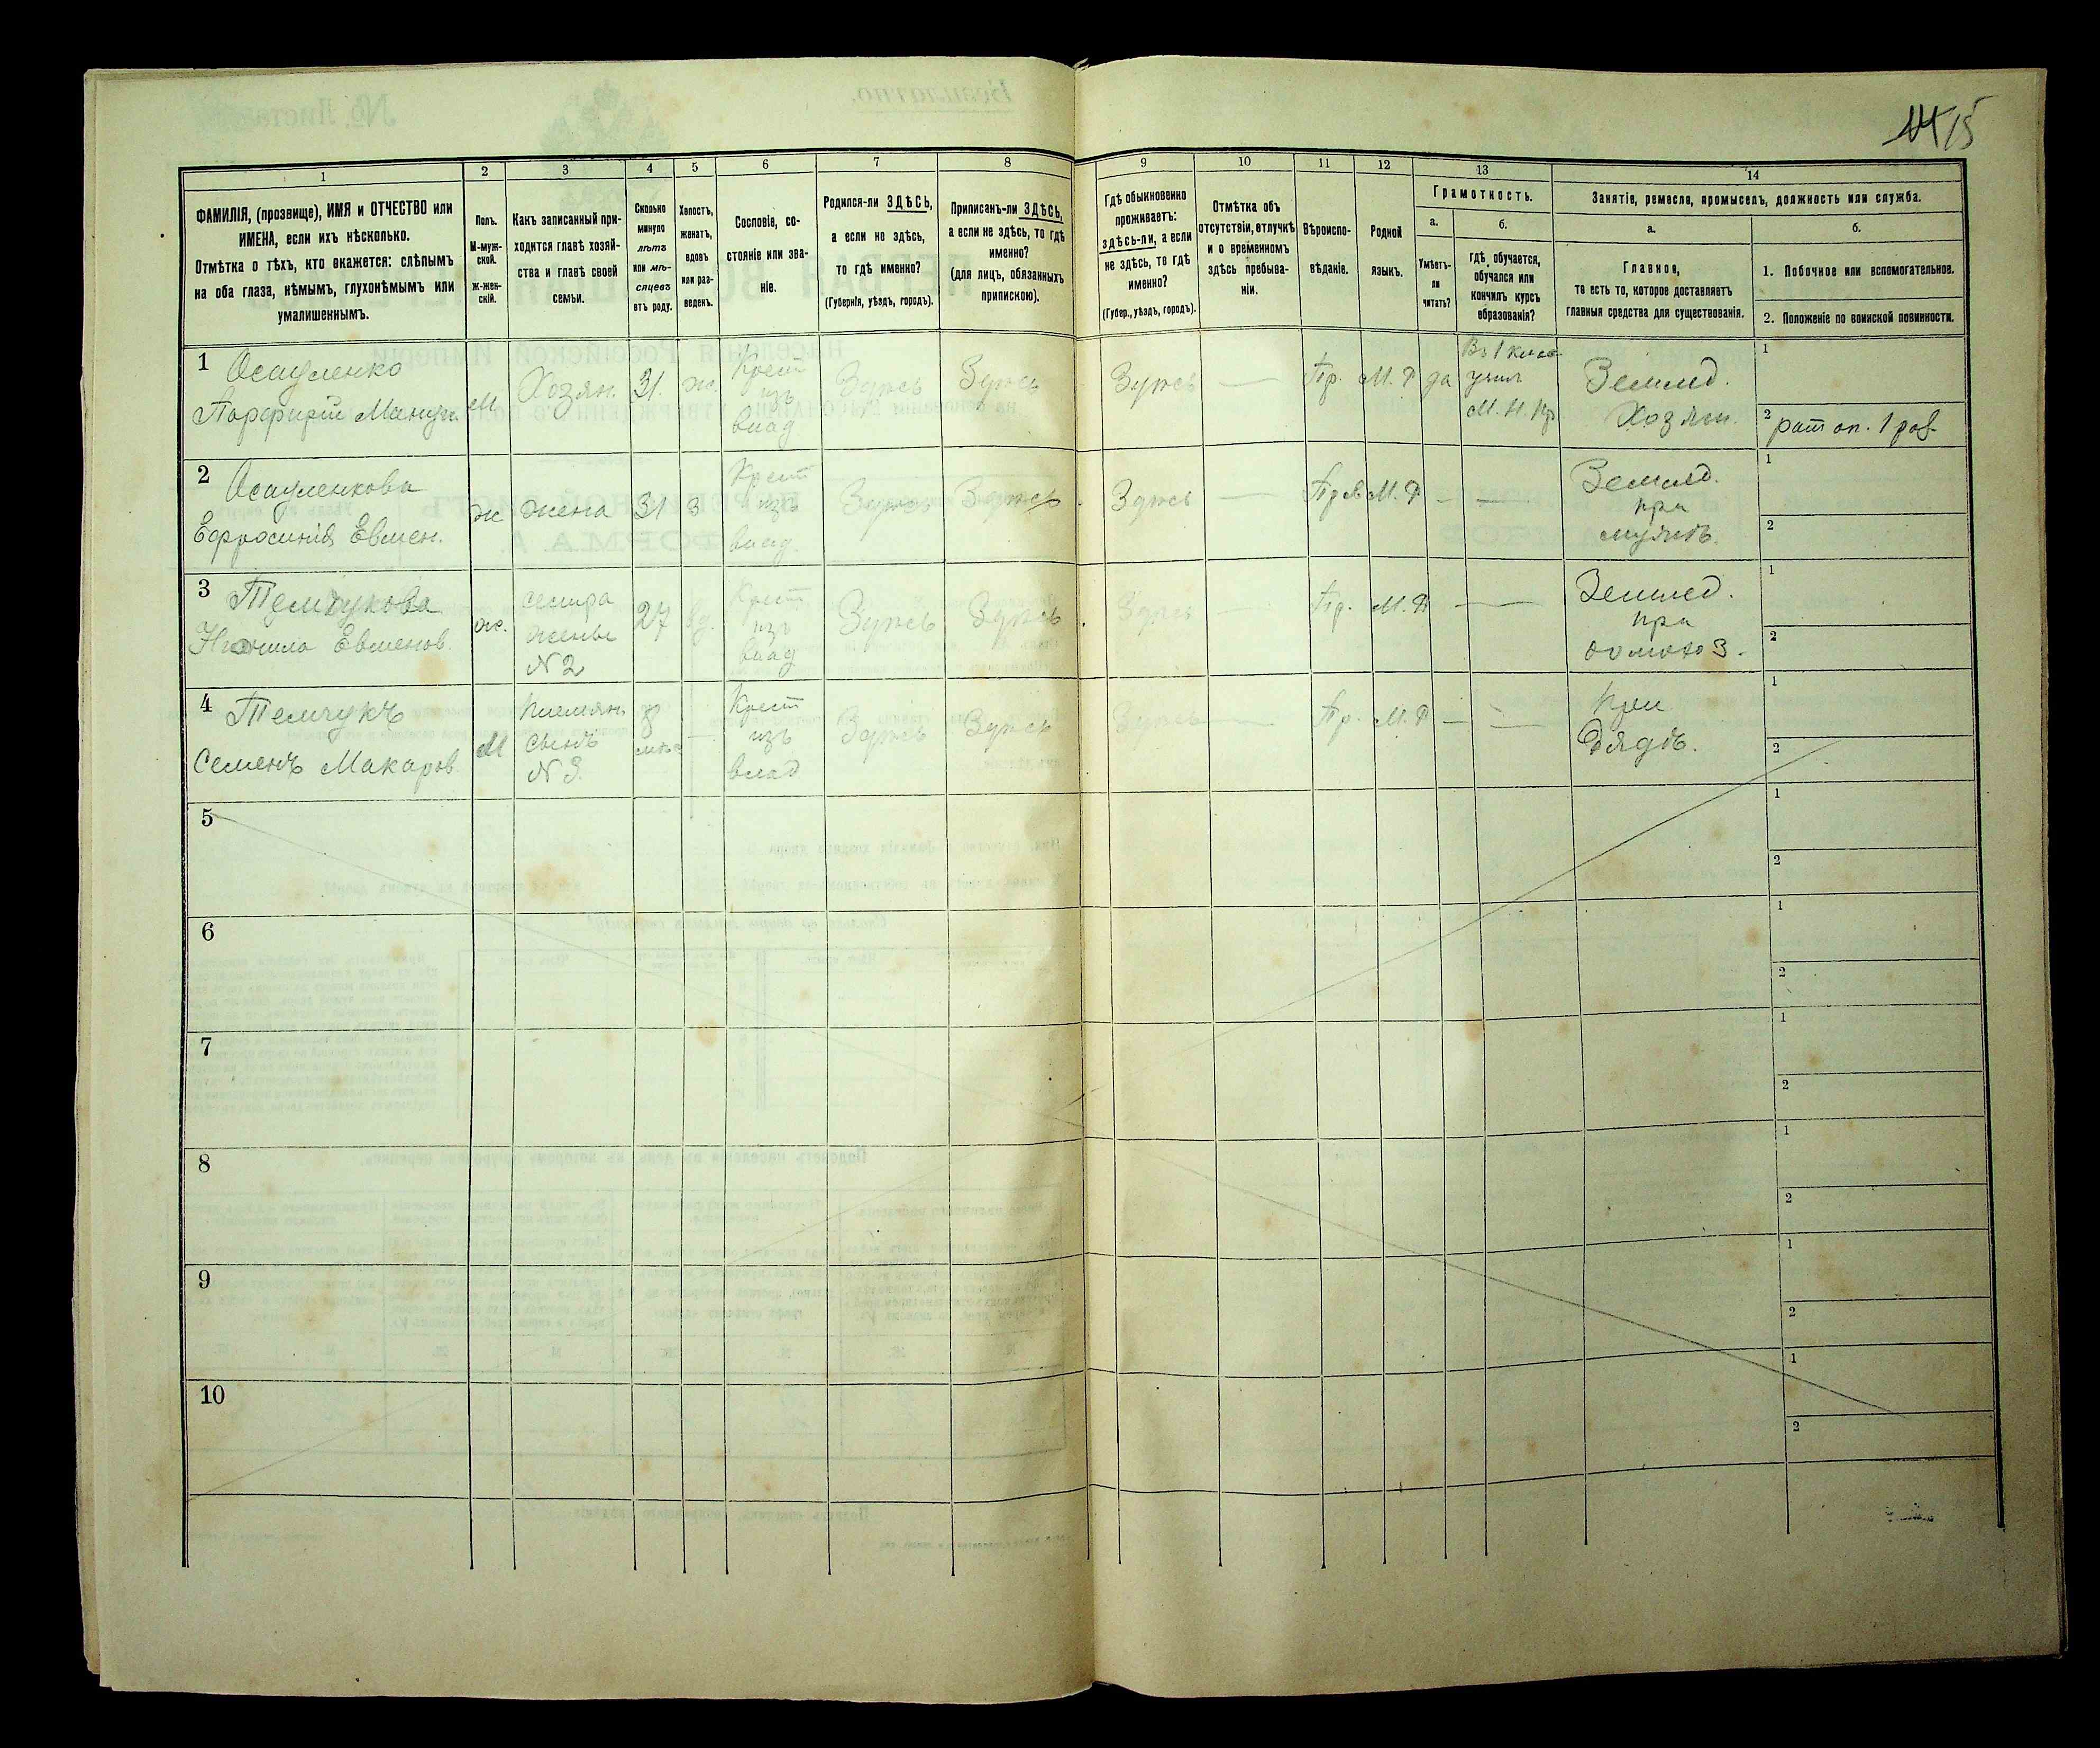 15
1
2
3
4
5
6
7
8
9
10
11
12
13
14
ФАМИЛІЯ, (прозвище), ИМЯ и ОТЧЕСТВО или
ИМЕНА, если ихъ нѣсколько.
Отмѣтка о тѣхъ, кто окажется: слѣпымъ
на оба глаза, нѣмымъ, глухонѣмымъ или
умалишеннымъ.
Полъ.
М-муж-
ской.
Ж-жен-
скій.
Какъ записанный при-
ходится главѣ хозяй-
ства и главѣ своей
семьи.
Сколько
минуло
лѣтъ
или мѣ-
сяцевъ
отъ роду.
Холостъ,
женатъ,
вдовъ
или раз-
веденъ.
Сословіе, со-
стояніе или зва-
ніе.
Родился-ли ЗДѢСЬ,
а если не здѣсь,
то гдѣ именно?
(Губернія, уѣздъ, городъ).
Приписанъ-ли ЗДѢСЬ,
а если не здѣсь, то гдѣ
именно?
(для лицъ, обязанныхъ
припискою).
Гдѣ обыкновенно
проживаетъ:
здѣсь-ли, а если
не здѣсь, то гдѣ
именно?
(Губер., уѣздъ, городъ).
Отмѣтка объ
отсутствіи, отлучкѣ
и о временномъ
здѣсь пребыва-
ніи.
Вѣроиспо-
вѣданіе.
Родной
языкъ.
Грамотность.
а.
Умѣетъ-
ли
читать?
б.
гдѣ обучается,
обучался или
кончилъ курсъ
образованія?
Занятіе, ремесло, промыселъ, должность или служба.
а.
Главное,
то есть то, которое доставляетъ
главныя средства для существованія.
б.
1. Побочное или вспомогательное.
2. Положеніе по воинской повинности.
1 Осауленко
Порфирій
М
Хозян. 31. ж.
Крест
изъ
влад
Здѣсь Здѣсь Здѣсь — Пр. М. Р да
Въ 1 клас
учил
М. Н. Пр
Землед.
Хозяин.
1
2 рат оп. 1 раз
2 Осауленкова
Ефросинія Евмен.
ж жена 31 з
Крест
изъ
влад.
Здѣсь Здѣсь Здѣсь — М. Р — —
Землед.
при
мужѣ.
1
2
3 Темчукова
Евменов.
ж.
сестра
жены
N 2
27 вд.
Крест
изъ
влад
Здѣсь Здѣсь Здѣсь — Пр. М. Р —
Землед.
при
домохоз.
1
2
4 Темчукъ
Семенъ Макаров
М
племян.
сынъ
N 3.
8
—
Крест
изъ
влад
Здѣсь Здѣсь Здѣсь — Пр. М. Р — —
при
дядѣ.
1
2
5
1
2
6
1
2
7
1
2
8
1
2
9
1
2
10
1
2